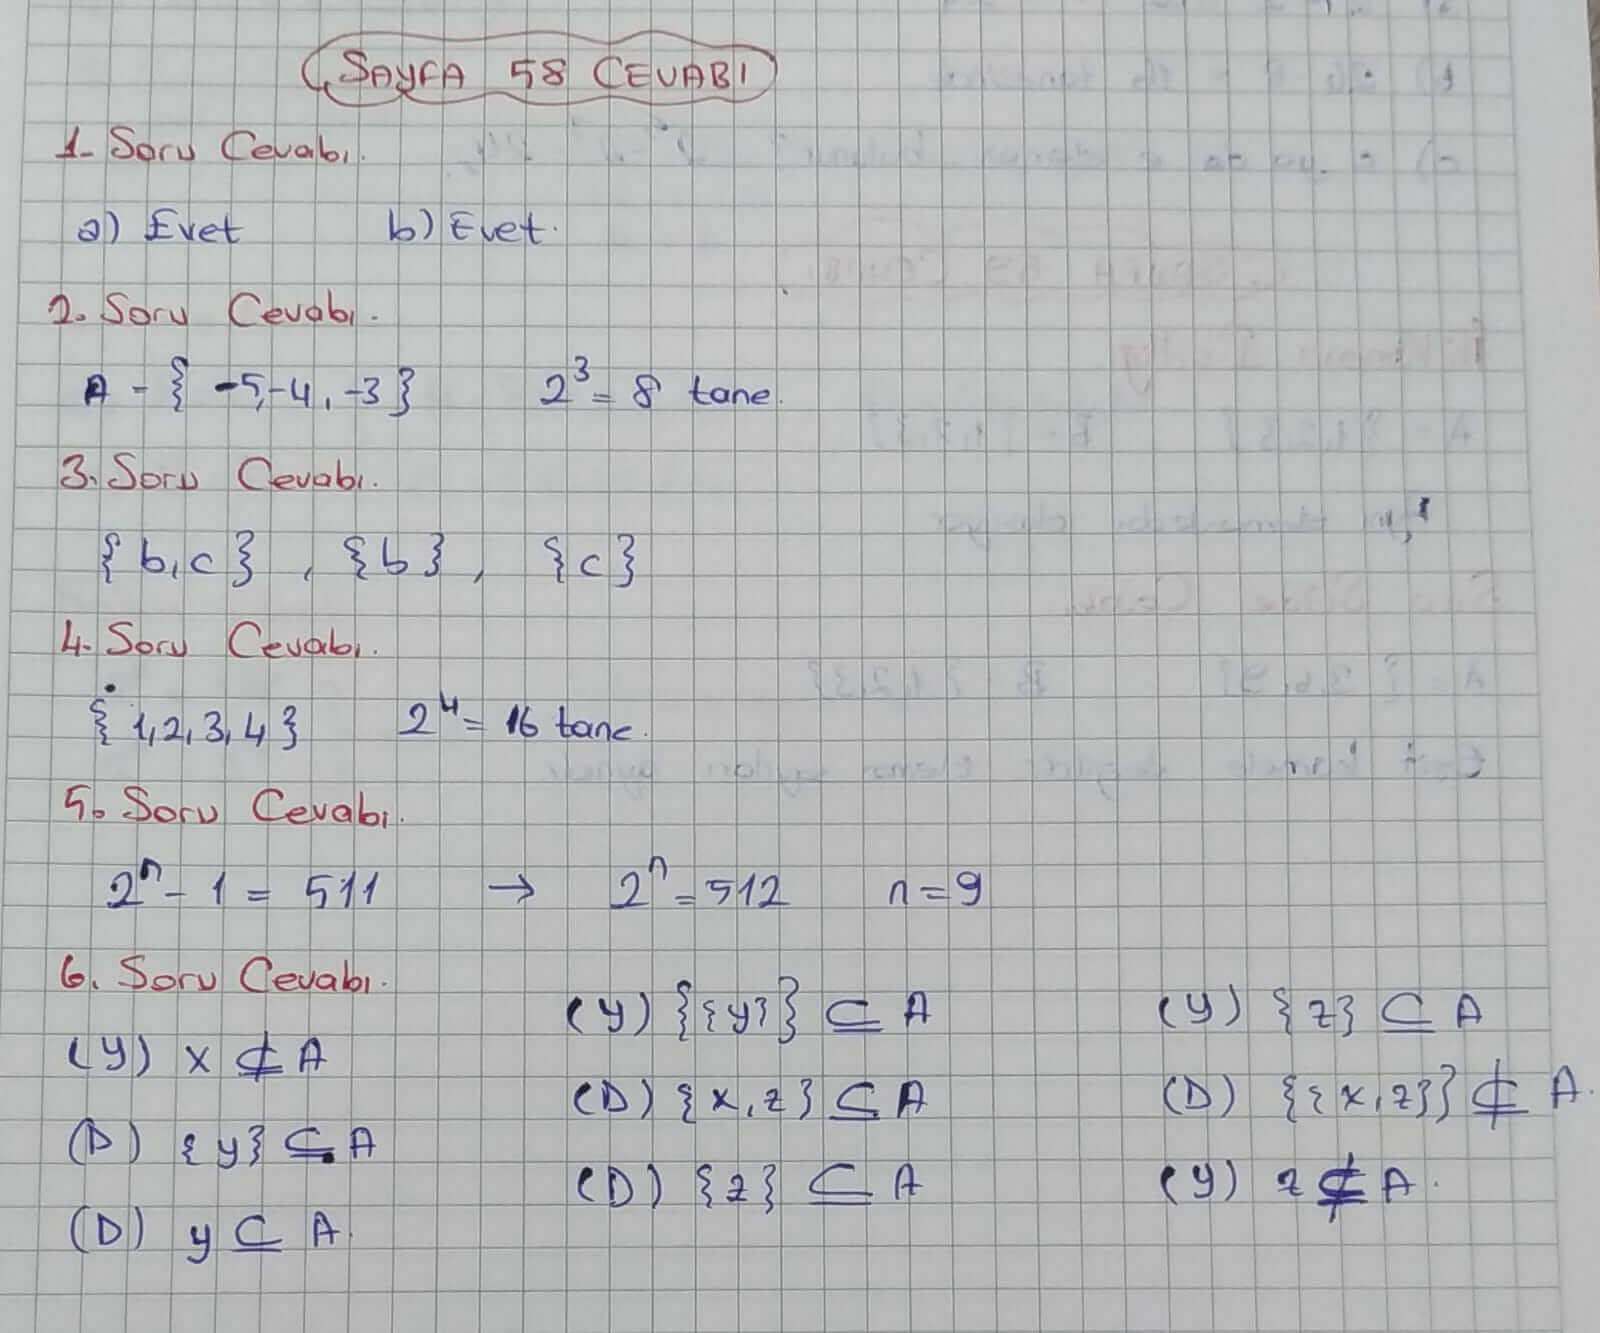 SAYFA 58 CEVABI
1- Soru Cevabı.
a) Evet b) Evet.
2. Soru Cevabı.
A = { -5, -4, -3 } 2³ = 8 tane.
3. Soru Cevabı.
{ b, c } , { b } , { c }
4. Soru Cevabı.
{ 1, 2, 3, 4 } 2⁴ = 16 tane.
5. Soru Cevabı.
2ⁿ - 1 = 511 → 2ⁿ = 512 n = 9
6. Soru Cevabı.
(Y) x ⊈ A
(D) { y } ⊆ A
(D) y ⊆ A.
(Y) {{y}} ⊆ A
(D) { x, z } ⊆ A
(D) { z } ⊆ A
(Y) { z } ⊆ A
(D) {{ x, z }} ⊈ A.
(Y) z ⊈ A.